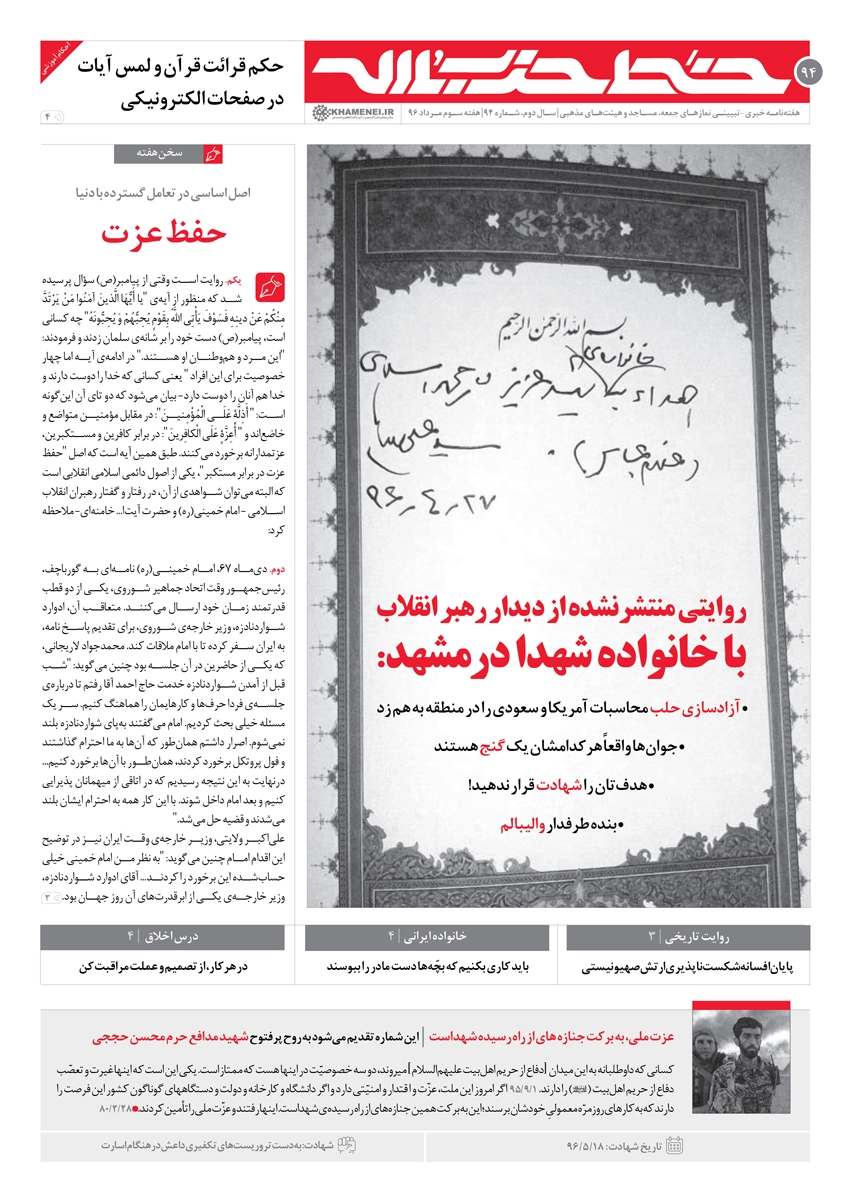 خط حزب‌الله
۹۴
هفته‌نامه خبری - تبیینی نمازهای جمعه، مساجد و هیئت‌های مذهبی | سال دوم، شماره ۹۴ | هفته سوم مرداد ۹۶
KHAMENEI.IR
احکام آموزشی
حکم قرائت قرآن و لمس آیات
در صفحات الکترونیکی
۴
بسم الله الرحمن الرحیم
خانواده‌ی
۹۶٫۴٫۲۷
روایتی منتشر نشده از دیدار رهبر انقلاب
با خانواده شهدا در مشهد:
• آزادسازی حلب محاسبات آمریکا و سعودی را در منطقه به هم زد
• جوان‌ها واقعاً هر کدامشان یک گنج هستند
• هدف‌تان را شهادت قرار ندهید!
• بنده طرفدار والیبالم
سخن هفته
اصل اساسی در تعامل گسترده با دنیا
حفظ عزت
یکم. روایت است وقتی از پیامبر(ص) سؤال پرسیده
شد که منظور از آیه‌ی "یا أَیُّهَا الَّذینَ آمَنُوا مَنْ یَرْتَدَّ
مِنْکُمْ عَنْ دینِهِ فَسَوْفَ یَأْتِی اللَّهُ بِقَوْمٍ یُحِبُّهُمْ وَ یُحِبُّونَهُ" چه کسانی
است، پیامبر(ص) دست خود را بر شانه‌ی سلمان زدند و فرمودند:
"این مرد و هم‌وطنان او هستند." در ادامه‌ی آیه اما چهار
خصوصیت برای این افراد " یعنی کسانی که خدا را دوست دارند و
خدا هم آنان را دوست دارد- بیان می‌شود که دو تای آن این‌گونه
است: "أَذِلَّةٍ عَلَی الْمُؤْمِنینَ": در مقابل مؤمنین متواضع و
خاضع‌اند و "أَعِزَّةٍ عَلَی الْکافِرینَ": در برابر کافرین و مستکبرین،
عزتمدارانه برخورد می‌کنند. طبق همین آیه است که اصل "حفظ
عزت در برابر مستکبر"، یکی از اصول دائمی اسلامی انقلابی است
که البته می‌توان شواهدی از آن، در رفتار و گفتار رهبران انقلاب
اسلامی -امام خمینی(ره) و حضرت آیت‌ا... خامنه‌ای- ملاحظه
کرد:
دوم. دی‌ماه ۶۷، امام خمینی(ره) نامه‌ای به گورباچف،
رئیس‌جمهور وقت اتحاد جماهیر شوروی، یکی از دو قطب
قدرتمند زمان خود ارسال می‌کنند. متعاقب آن، ادوارد
شواردنادزه، وزیر خارجه‌ی شوروی، برای تقدیم پاسخ نامه،
به ایران سفر کرده تا با امام ملاقات کند. محمدجواد لاریجانی،
که یکی از حاضرین در آن جلسه بود چنین می‌گوید: "شب
قبل از آمدن شواردنادزه خدمت حاج احمد آقا رفتم تا درباره‌ی
جلسه‌ی فردا حرف‌ها و کارهایمان را هماهنگ کنیم. سر یک
مسئله خیلی بحث کردیم. امام می‌گفتند به‌پای شواردنادزه بلند
نمی‌شوم. اصرار داشتم همان‌طور که آن‌ها به ما احترام گذاشتند
و فول پروتکل برخورد کردند، همان‌طور با آن‌ها برخورد کنیم...
درنهایت به این نتیجه رسیدیم که در اتاقی از میهمانان پذیرایی
کنیم و بعد امام داخل شوند. با این کار همه به احترام ایشان بلند
می‌شدند و قضیه حل می‌شد."
علی‌اکبر ولایتی، وزیر خارجه‌ی وقت ایران نیز در توضیح
این اقدام امام چنین می‌گوید: "به نظر من امام خمینی خیلی
حساب‌شده این برخورد را کردند... آقای ادوارد شواردنادزه،
وزیر خارجه‌ی یکی از ابرقدرت‌های آن روز جهان بود. ۳
روایت تاریخی | ۳
پایان افسانه شکست‌ناپذیری ارتش صهیونیستی
خانواده ایرانی | ۴
باید کاری بکنیم که بچّه‌ها دست مادر را ببوسند
درس اخلاق | ۴
در هر کار، از تصمیم و عملت مراقبت کن
عزت ملی، به برکت جنازه‌های از راه رسیده شهداست | این شماره تقدیم می‌شود به روح پرفتوح شهید مدافع حرم محسن حججی
کسانی که داوطلبانه به این میدان [دفاع از حریم اهل‌بیت علیهم‌السلام] میروند، دو سه خصوصیّت در اینها هست که ممتاز است. یکی این است که اینها غیرت و تعصّب
دفاع از حریم اهل‌بیت (ﷺ) را دارند. ۹۵/۹/۱ اگر امروز این ملت، عزّت و اقتدار و امنیّتی دارد و اگر دانشگاه و کارخانه و دولت و دستگاههای گوناگون کشور این فرصت را
دارند که به کارهای روزمرّه معمولیِ خودشان برسند؛ این به برکت همین جنازه‌های از راه رسیده‌ی شهداست. اینها رفتند و عزّت ملی را تأمین کردند. ● ۸۰/۲/۲۸
تاریخ شهادت: ۹۶/۵/۱۸
شهادت: به دست تروریست‌های تکفیری داعش در هنگام اسارت